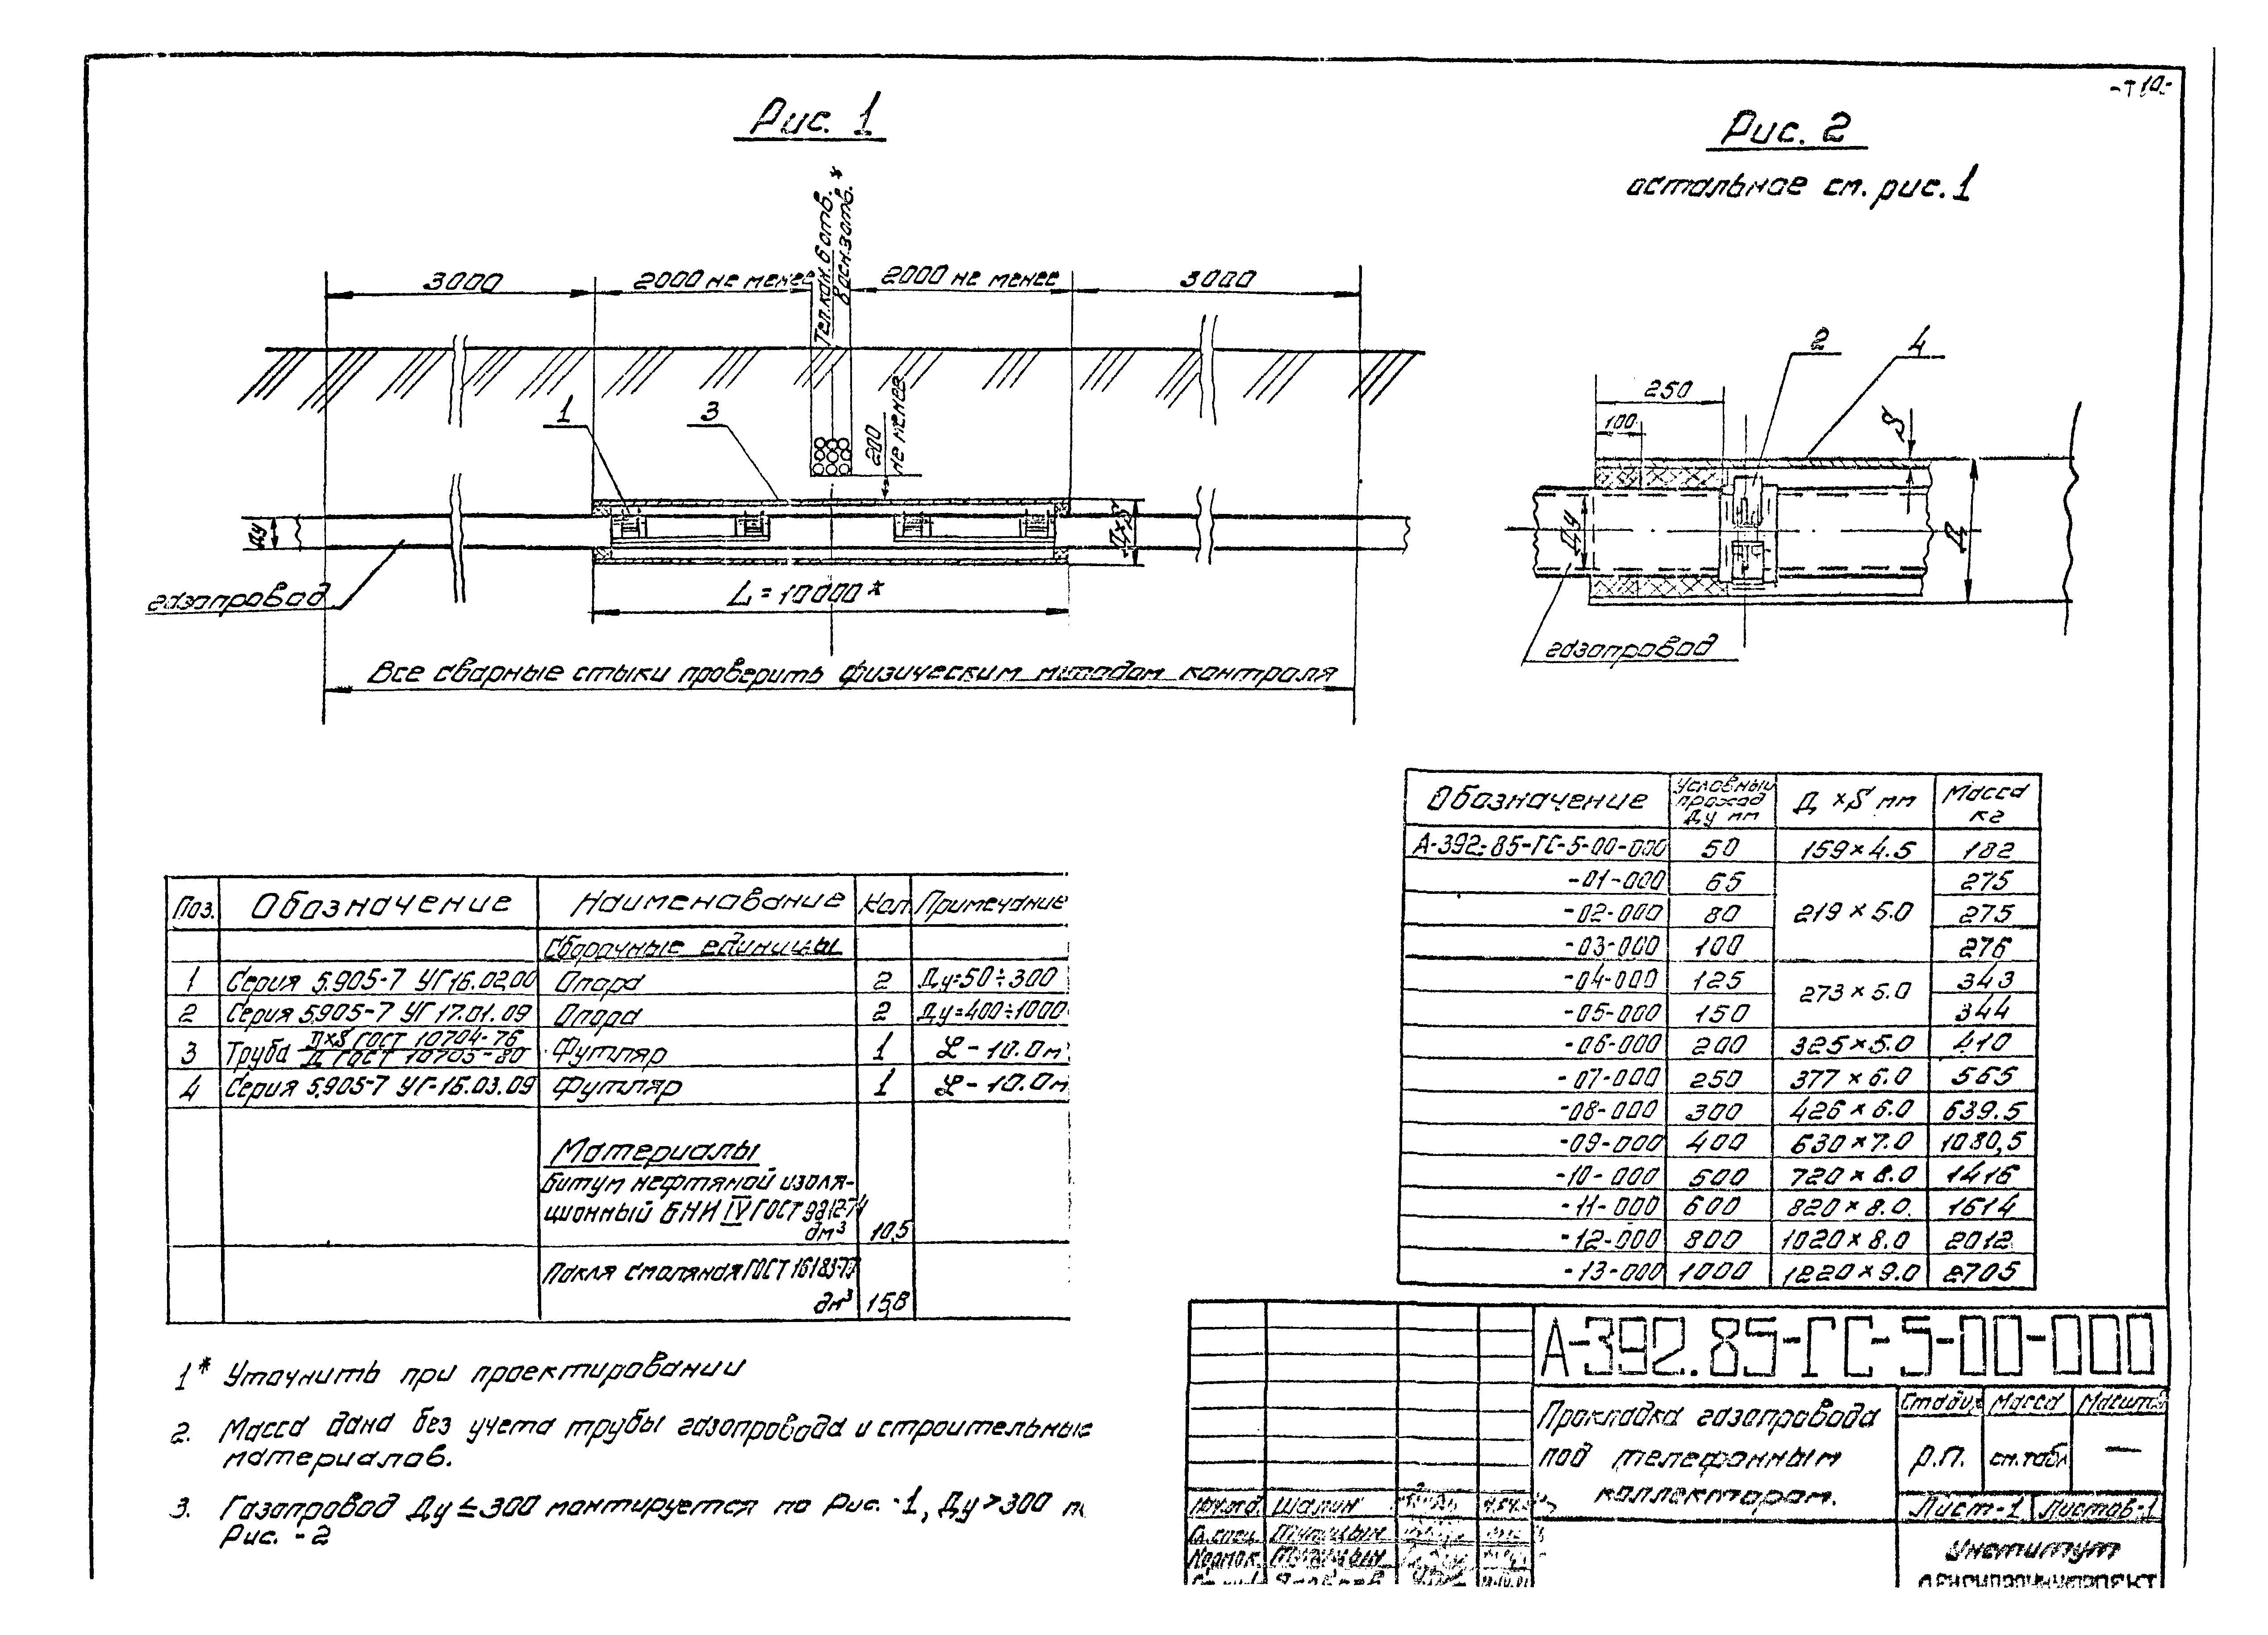 Рис. 1
Рис. 2
остальное см. рис. 1
Тел.кан. 6 отв. *
3000
2000 не менее
2000 не менее
3000
1
3
200
не менее
Ду
Д×S
газопровод
L = 10000*
Все сварные стыки проверить физическим методом контроля
2
4
250
100
S
Ду
Д
газопровод
Обозначение Условный проход Ду мм Д × S мм Масса кг
А-392.85-ГС-5-00-000 50 159 × 4.5 182
-01-000 65 275
-02-000 80 219 × 5.0 275
-03-000 100 276
-04-000 125 273 × 5.0 343
-05-000 150 344
-06-000 200 325 × 5.0 410
-07-000 250 377 × 6.0 565
-08-000 300 426 × 6.0 639.5
-09-000 400 630 × 7.0 1080,5
-10-000 500 720 × 8.0 1416
-11-000 600 820 × 8.0 1614
-12-000 800 1020 × 8.0 2012
-13-000 1000 1220 × 9.0 2705
Поз. Обозначение Наименование Кол. Примечание
Сборочные единицы
1 Серия 5.905-7 УГ 16.02.00 Опора 2 Ду=50÷300
2 Серия 5.905-7 УГ 17.01.09 Опора 2 Ду=400÷1000
3 Труба Д×S ГОСТ 10704-76 / Д ГОСТ 10705-80 Футляр 1 L - 10.0м
4 Серия 5.905-7 УГ-16.03.09 Футляр 1 L - 10.0м
Материалы
Битум нефтяной изоля-
ционный БНИ IV ГОСТ 9812-74
дм³ 10,5
Пакля смоляная ГОСТ 16183-77
дм³ 15,8
1* Уточнить при проектировании
2. Масса дана без учета трубы газопровода и строительные
материалов.
3. Газопровод Ду ≤ 300 монтируется по Рис. -1, Ду > 300 п
Рис. - 2
А-392.85-ГС-5-00-000
Прокладка газопровода
под телефонным
коллектором.
Стадия Масса Масштаб
Р.П. см.табл —
Лист-1 Листов-1
Нач.отд. Шарин
Гл.спец.
Институт